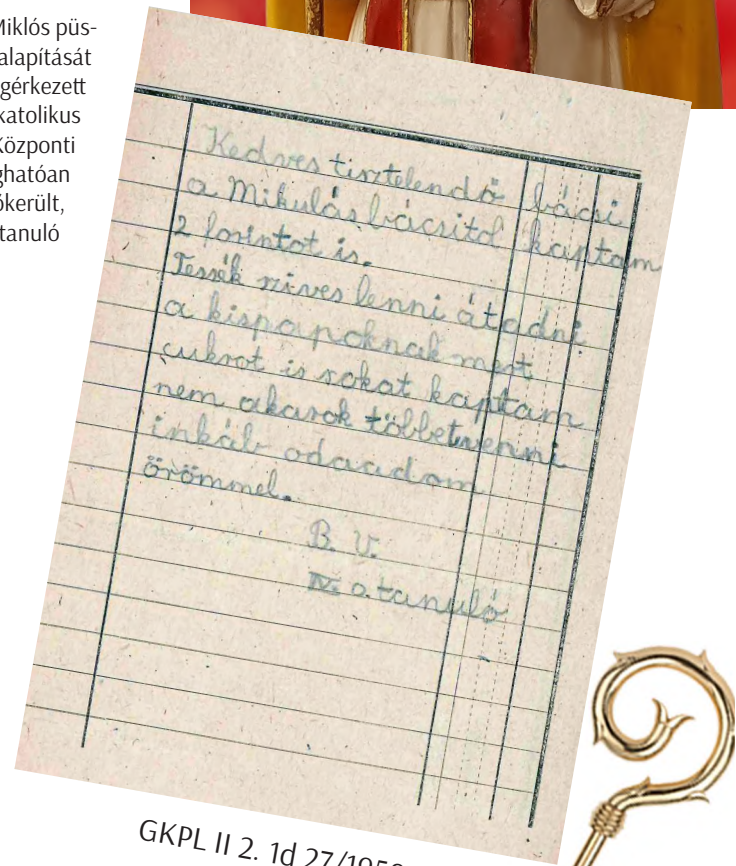 Miklós püs-
alapítását
gérkezett
katolikus
Központi
ghatóan
őkerült,
tanuló
Kedves tisztelendő bácsi
a Mikulásbácsitol kaptam
2 forintot is.
Tessék szives lenni átadni
a kispapoknak mert
cukrot is sokat kaptam
nem akarok többetvenni
inkáb odaadom
örömmel.
B. V.
IV. o. tanuló
GKPL II 2. 1d 27/1950